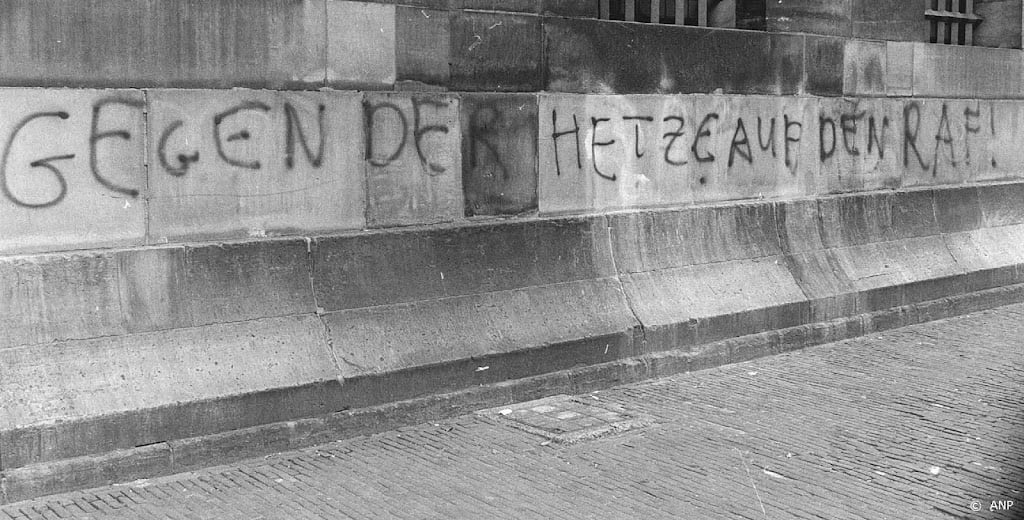 GEGEN DER HETZE AUF DEN RAF!
© ANP